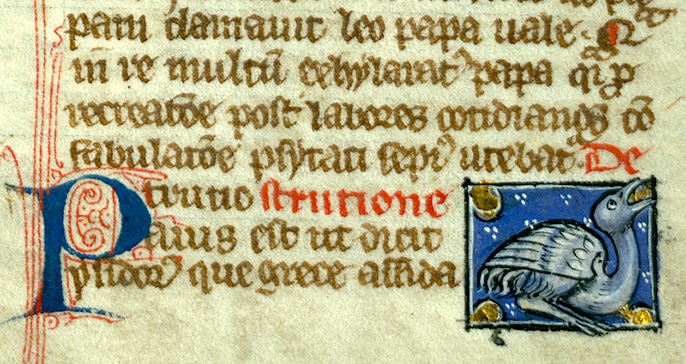 pam clamauit leo papa uale. Q
in re multū exhylarat᷑ papa qi p
recreatōe post labores cotidianos cō
fabulatōe psytaci sepiꝰ utebat᷑. De
Ptrutio strutione
auis est ut dicit
ysidorꝰ que grece assida